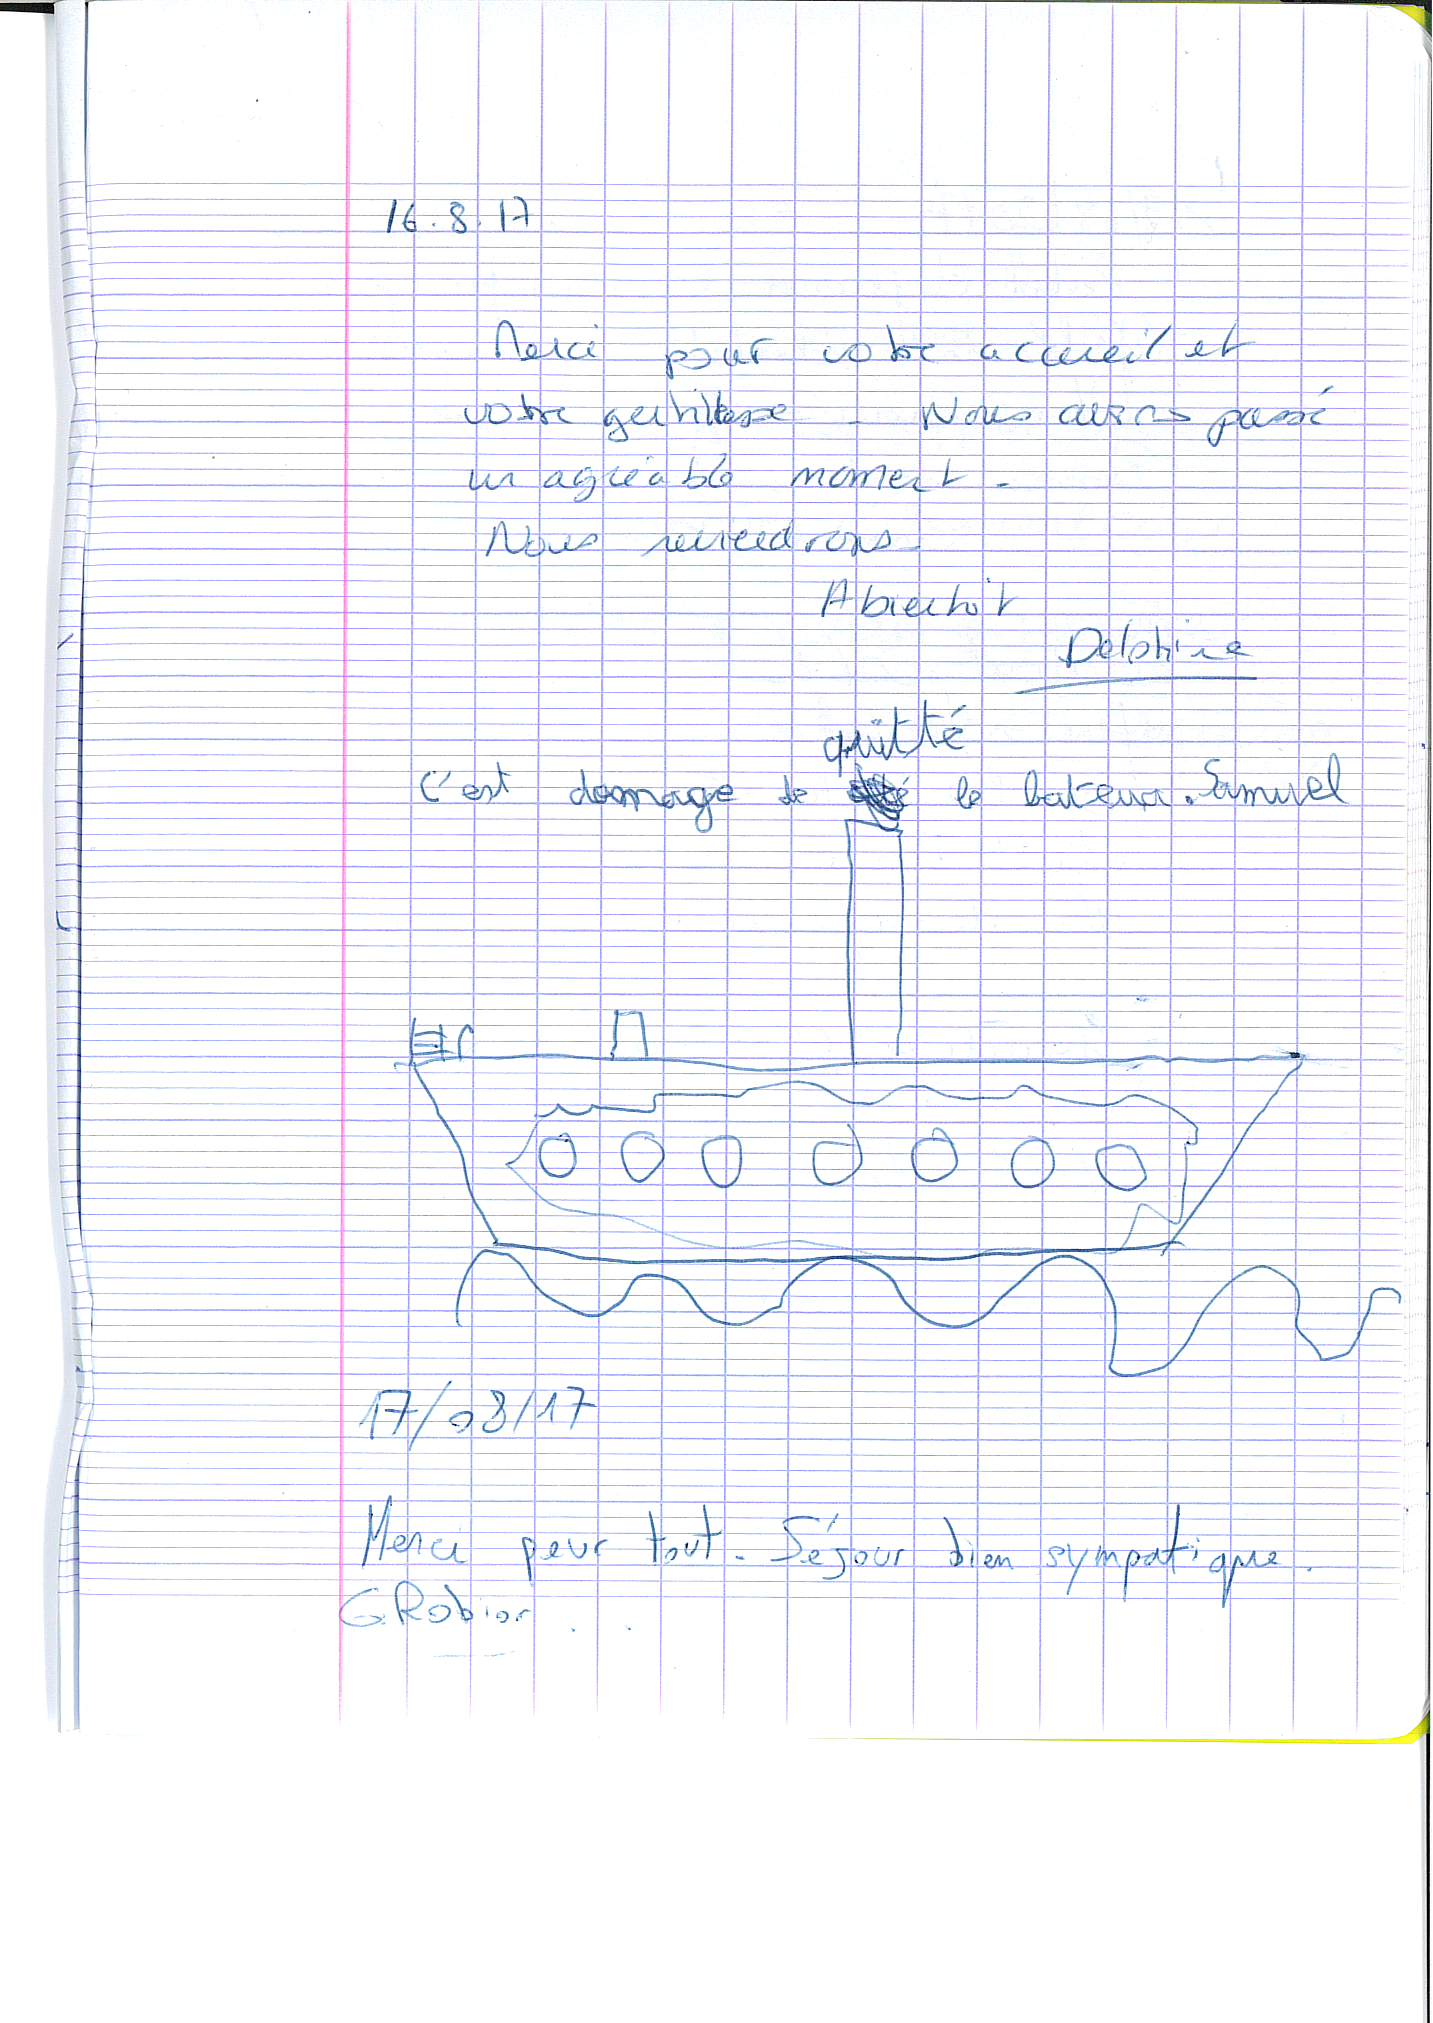 16.8.17
Merci pour votre accueil et
votre gentillesse. Nous avons passé
un agréable moment.
Nous reviendrons.
A bientôt
Delphine
quitté
C'est domage de le bateau. Samuel
17/08/17
Merci pour tout. Séjour bien sympatique.
G.Robior